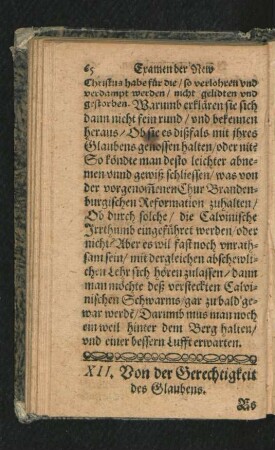 65 Examen der New
Christus habe für die/ so verlohren vnd
verdampt werden/ nicht gelidten vnd
gestorben. Warumb erklären sie sich
dann nicht fein rund/ vnd bekennen
heraus/ Ob sie es dißfals mit jhres
Glaubens genossen halten/ oder nit?
So köndte man desto leichter abne-
men vnnd gewiß schliessen/ was von
der vorgenom̃enen Chur Branden-
burgischen Reformation zuhalten/
Ob durch solche/ die Calvinische
Jrrthumb eingeführet werden/ oder
nicht? Aber es wil fast noch vnrath-
sam sein/ mit dergleichen abschewli-
chen Lehr sich hören zulassen/ dann
man möchte deß versteckten Calvi-
nischen Schwarms/ gar zu bald ge-
war werdē/ Darumb mus man noch
ein weil hinter dem Berg halten/
vnd einer bessern Lufft erwarten.
XII. Von der Gerechtigkeit
des Glaubens.